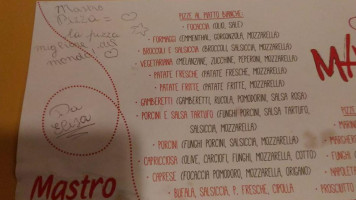 Mastro
Pizza =
la pizza
migliore al
mondo!
Da
Mastro
PIZZE AL MATTO BIANCHE:
• FOCACCIA (OLIO, SALE)
• FORMAGGI (EMMENTHAL, GORGONZOLA, MOZZARELLA)
• BROCCOLI E SALSICCIA (BROCCOLI, SALSICCIA, MOZZARELLA)
• VEGETARIANA (MELANZANE, ZUCCHINE, PEPERONI, MOZZARELLA)
• PATATE FRESCHE (PATATE FRESCHE, MOZZARELLA)
• PATATE FRITTE (PATATE FRITTE, MOZZARELLA)
• GAMBERETTI (GAMBERETTI, RUCOLA, POMODORINI, SALSA ROSA)
• PORCINI E SALSA TARTUFO (FUNGHI PORCINI, SALSA TARTUFO,
SALSICCIA, MOZZARELLA)
• PORCINI (FUNGHI PORCINI, SALSICCIA, MOZZARELLA)
• CAPRICCIOSA (OLIVE, CARCIOFI, FUNGHI, MOZZARELLA, COTTO)
• CAPRESE (FOCACCIA POMODORO, MOZZARELLA, ORIGANO)
• BUFALA, SALSICCIA, P. FRESCHE, CIPOLLA
MA
PIZZE
• MARIN
MOZZ
• MARGHE
• FUNGHI
• PROSCIUTTO